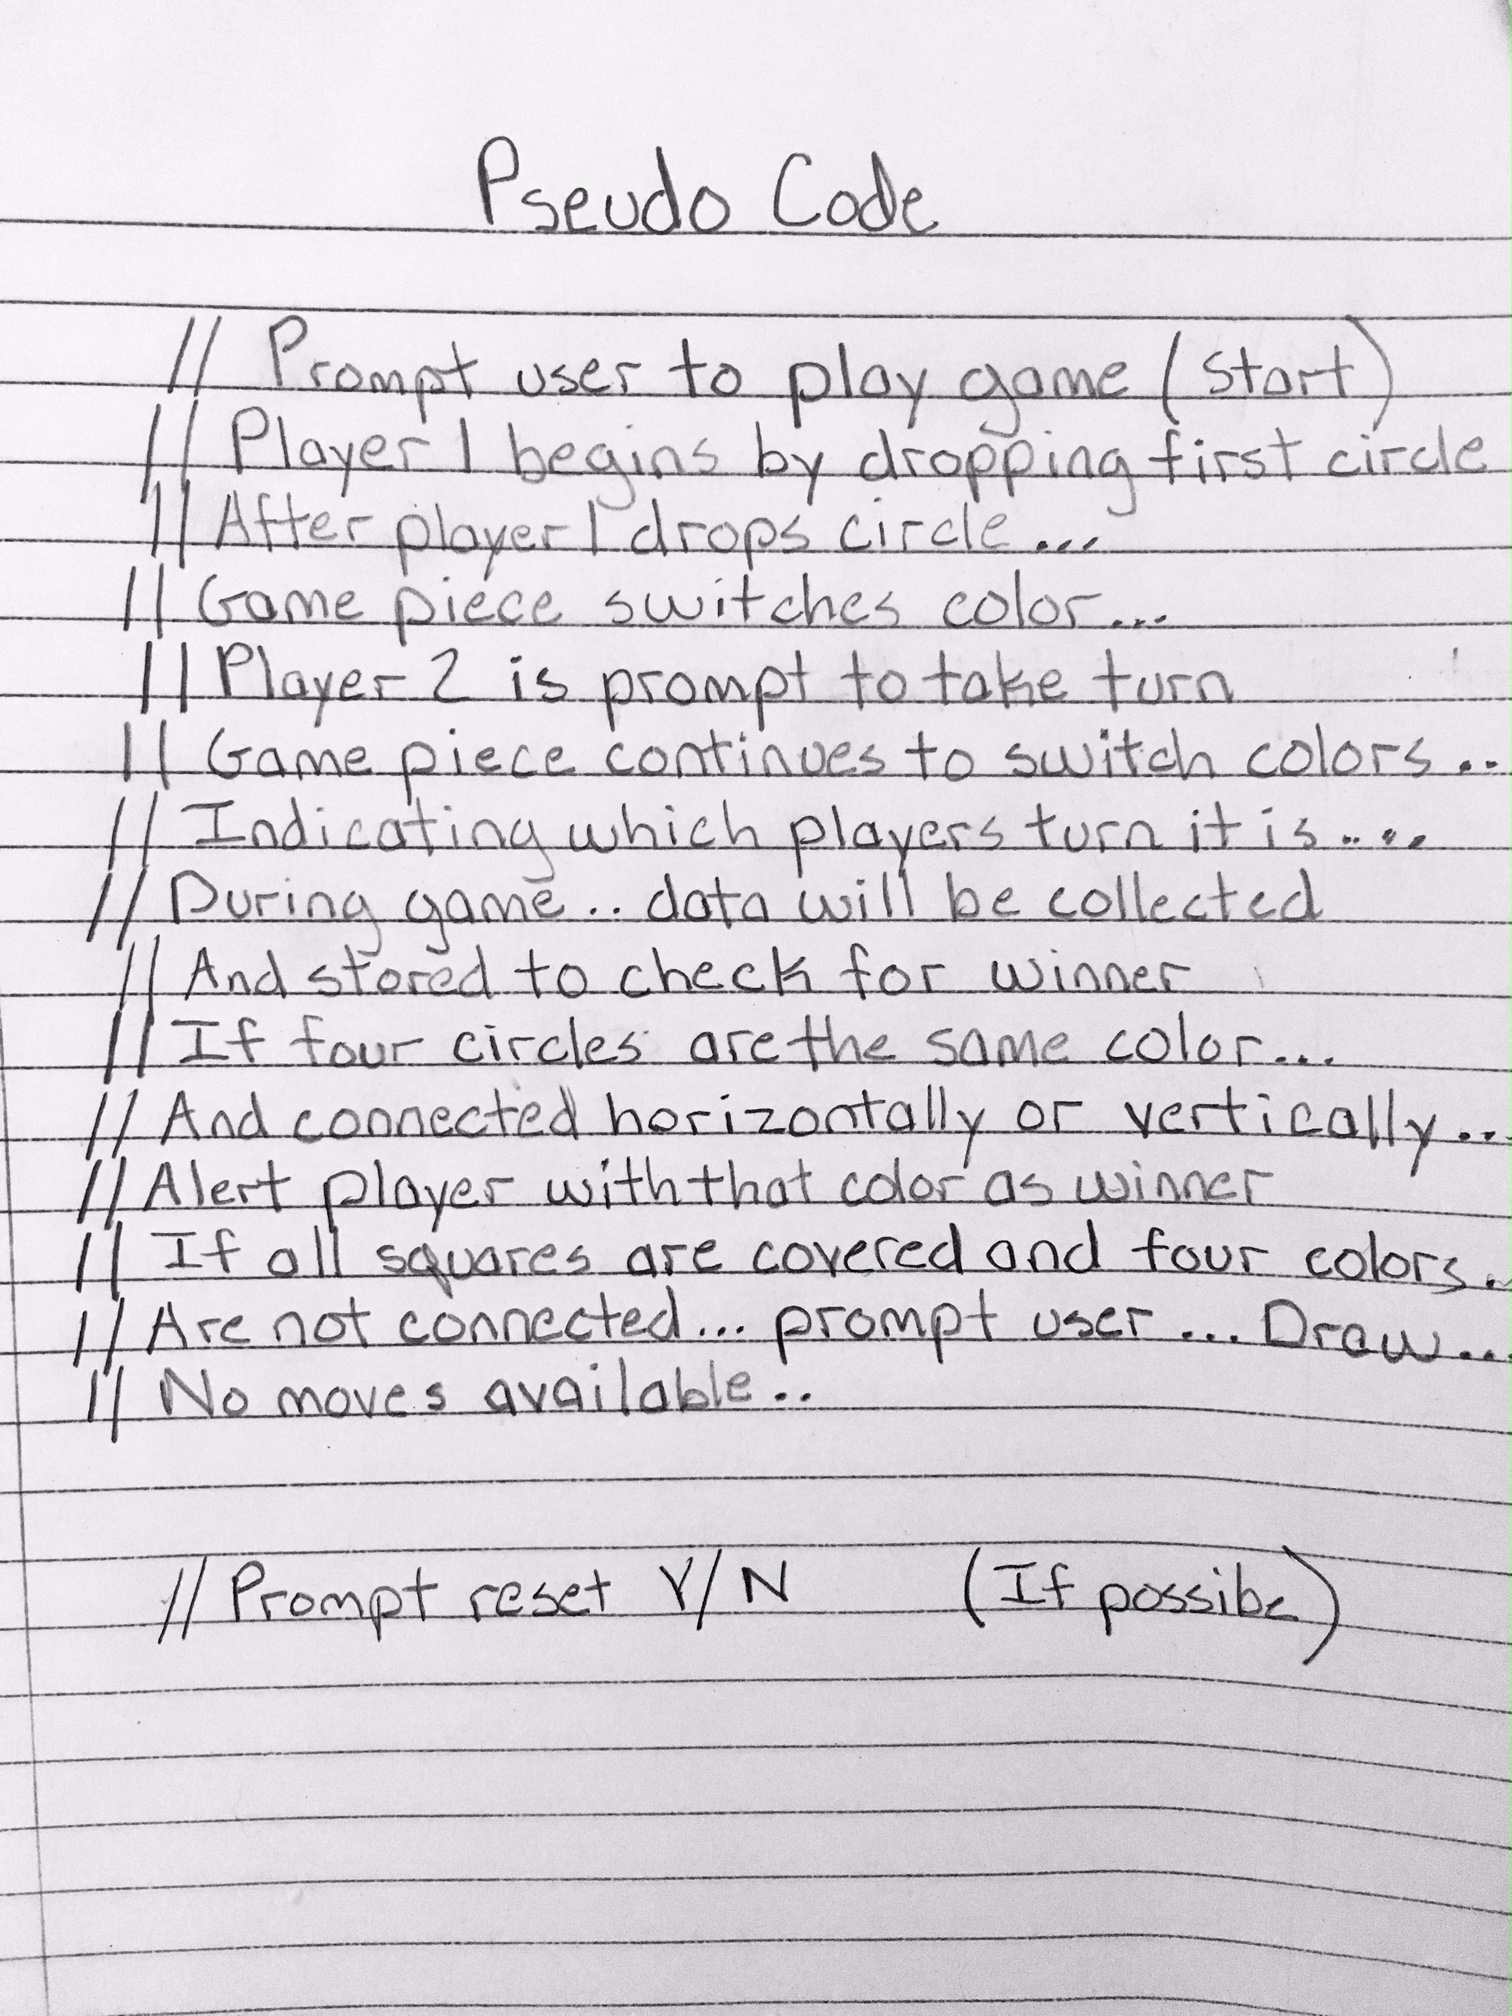 Pseudo Code
// Prompt user to play game (start)
// Player 1 begins by dropping first circle
// After player 1 drops circle...
// Game piece switches color...
// Player 2 is prompt to take turn
// Game piece continues to switch colors..
// Indicating which players turn it is....
// During game.. data will be collected
// And stored to check for winner
// If four circles are the same color...
// And connected horizontally or vertically...
// Alert player with that color as winner
// If all squares are covered and four colors.
// Are not connected... prompt user... Draw...
// No moves available..
// Prompt reset Y/N (If possibe)